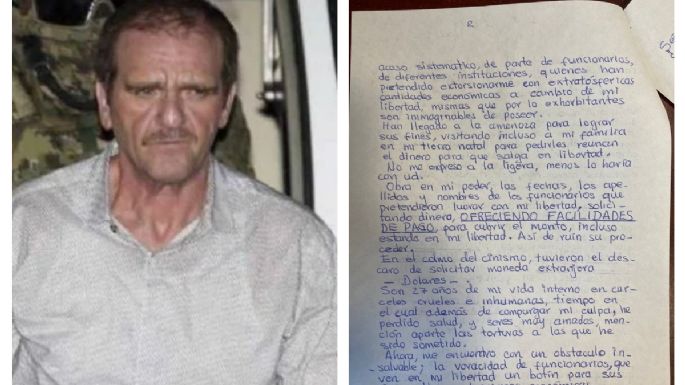 2
acoso sistematico, de parte de funcionarios,
de diferentes instituciones, quienes han
pretendido extorsionarme con extratósfericas
cantidades económicas a cambio de mi
libertad, mismas que por lo exhorbitantes
son inimaginables de poseer.
Han llegado a la amenaza para lograr
sus fines, visitando incluso a mi familia
en mi tierra natal para pedirles reunan
el dinero para que salga en libertad.
No me expreso a la ligera, menos lo haría
con ud.
Obra en mi poder, las fechas, los ape-
llidos y nombres de los funcionarios que
pretendieron lucrar con mi libertad, solici-
tando dinero, OFRECIENDO FACILIDADES
DE PAGO, para cubrir el monto, incluso
estando en mi libertad. Así de ruin su pro-
ceder.
En el colmo del cinismo, tuvieron el des-
caro de solicitar moneda extranjera
— Dolares — .
Son 27 años de mi vida interno en car-
celes crueles e inhumanas, tiempo en
el cual además de compurgar mi culpa, he
perdido salud, y seres muy amados, men-
ción aparte las torturas a las que he
sido sometido.
Ahora, me encuentro con un obstaculo in-
salvable; la voracidad de funcionarios, que
ven en mi libertad un botín para sus